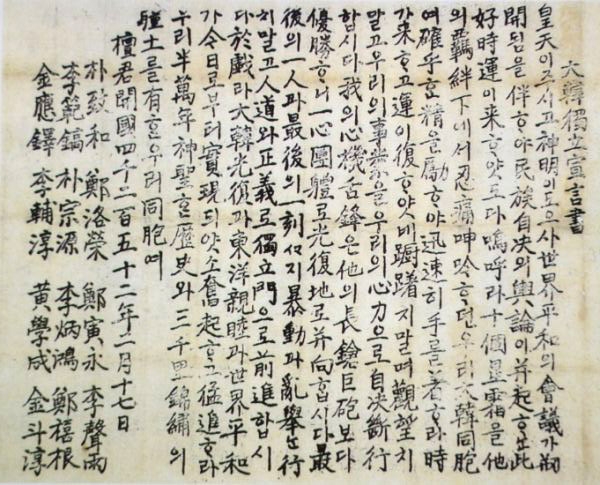 大韓獨立宣言書
皇天이주시고神明이도으사世界平和의會議가初
開됨을伴하야民族自決의輿論이并起하는此
好時運이来하얏도다嗚呼라十個星霜을他
의羈絆下에서忍痛呻吟하던우리大韓同胞
여確乎한精을勵하야迅速히手를着하라時
가来하고運이復하얏네躕躇치말며觀望치
말고우리의事業을우리의心力으로自决斷行
합시다我의心機舌鋒은他의長鎗巨砲보다
優勝하니一心團體로光復地로并向합시다最
後의一人과最後의一刻ᄭᆞ지暴動과亂擧는行
치말고人道와正義로獨立門으로前進합시
다於戯라大韓光復과東洋親睦과世界平和
가今日로부터實現되얏소奮起하고猛進하라
우리半萬年神聖한歷史와三千里錦繡의
疆土를有한우리同胞여
檀君開國四千二百五十二年二月十七日
朴致和 鄭洛榮 鄭寅永 李聲雨
李範鎬 朴宗源 李炳鴻 鄭禧根
金應鐸 李輔淳 黃學成 金斗淳